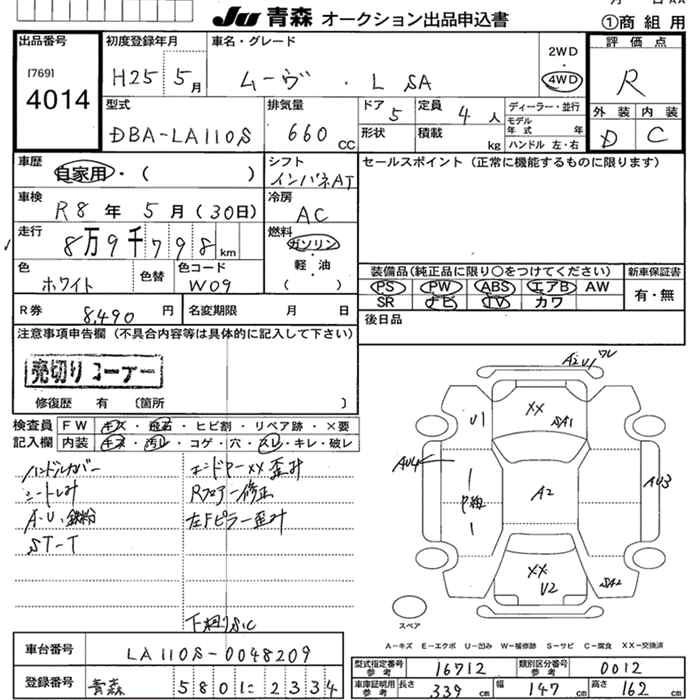 JU 青森 オークション出品申込書
①商組用
出品番号
[769]
4014
初度登録年月
H25 5月
車名・グレード
ムーヴ ・ L SA
2WD
4WD
評価点
R
外装 内装
D C
型式
DBA-LA110S
排気量
660 CC
ドア 5
定員 4 人
形状
積載 kg
ディーラー・並行
モデル年式 年
ハンドル 左・右
車歴
自家用・( )
シフト
インパネAT
セールスポイント (正常に機能するものに限ります)
車検
R8 年 5 月 (30日)
冷房
AC
走行
8万9千798 km
燃料
ガソリン
・
軽・油
( )
色
ホワイト
色替
色コード
W09
装備品(純正品に限り○をつけてください)
新車保証書
PS PW ABS エアB AW
有・無
SR ナビ TV カワ
R券 8,490 円
名変期限 月 日
後日品
注意事項申告欄 (不具合内容等は具体的に記入して下さい)
売切りコーナー
修復歴 有 (箇所 )
検査員 FW キズ・飛石・ヒビ割・リペア跡・×要
記入欄 内装 キズ・汚レ・コゲ・穴・スレ・キレ・破レ
ハンドルカバー
シートしみ
A・U、鉄粉
ST-T
エンドPーXX歪み
Rフロアー修正
左Fピラー歪み
下廻りS,C
A2U1 ワレ
XX
SA1
U1
AU4
P線
A2
AU3
XX
U2
SA2
スペア
A-キズ E-エクボ U-凹み W-補修跡 S-サビ C-腐食 XX-交換済
車台番号
LA110S-0048209
登録番号
青森 5801に2334
型式指定番号 参考
16712
類別区分番号 参考
0012
車庫証明用 参考
長さ 339 cm
幅 147 cm
高さ 162 cm